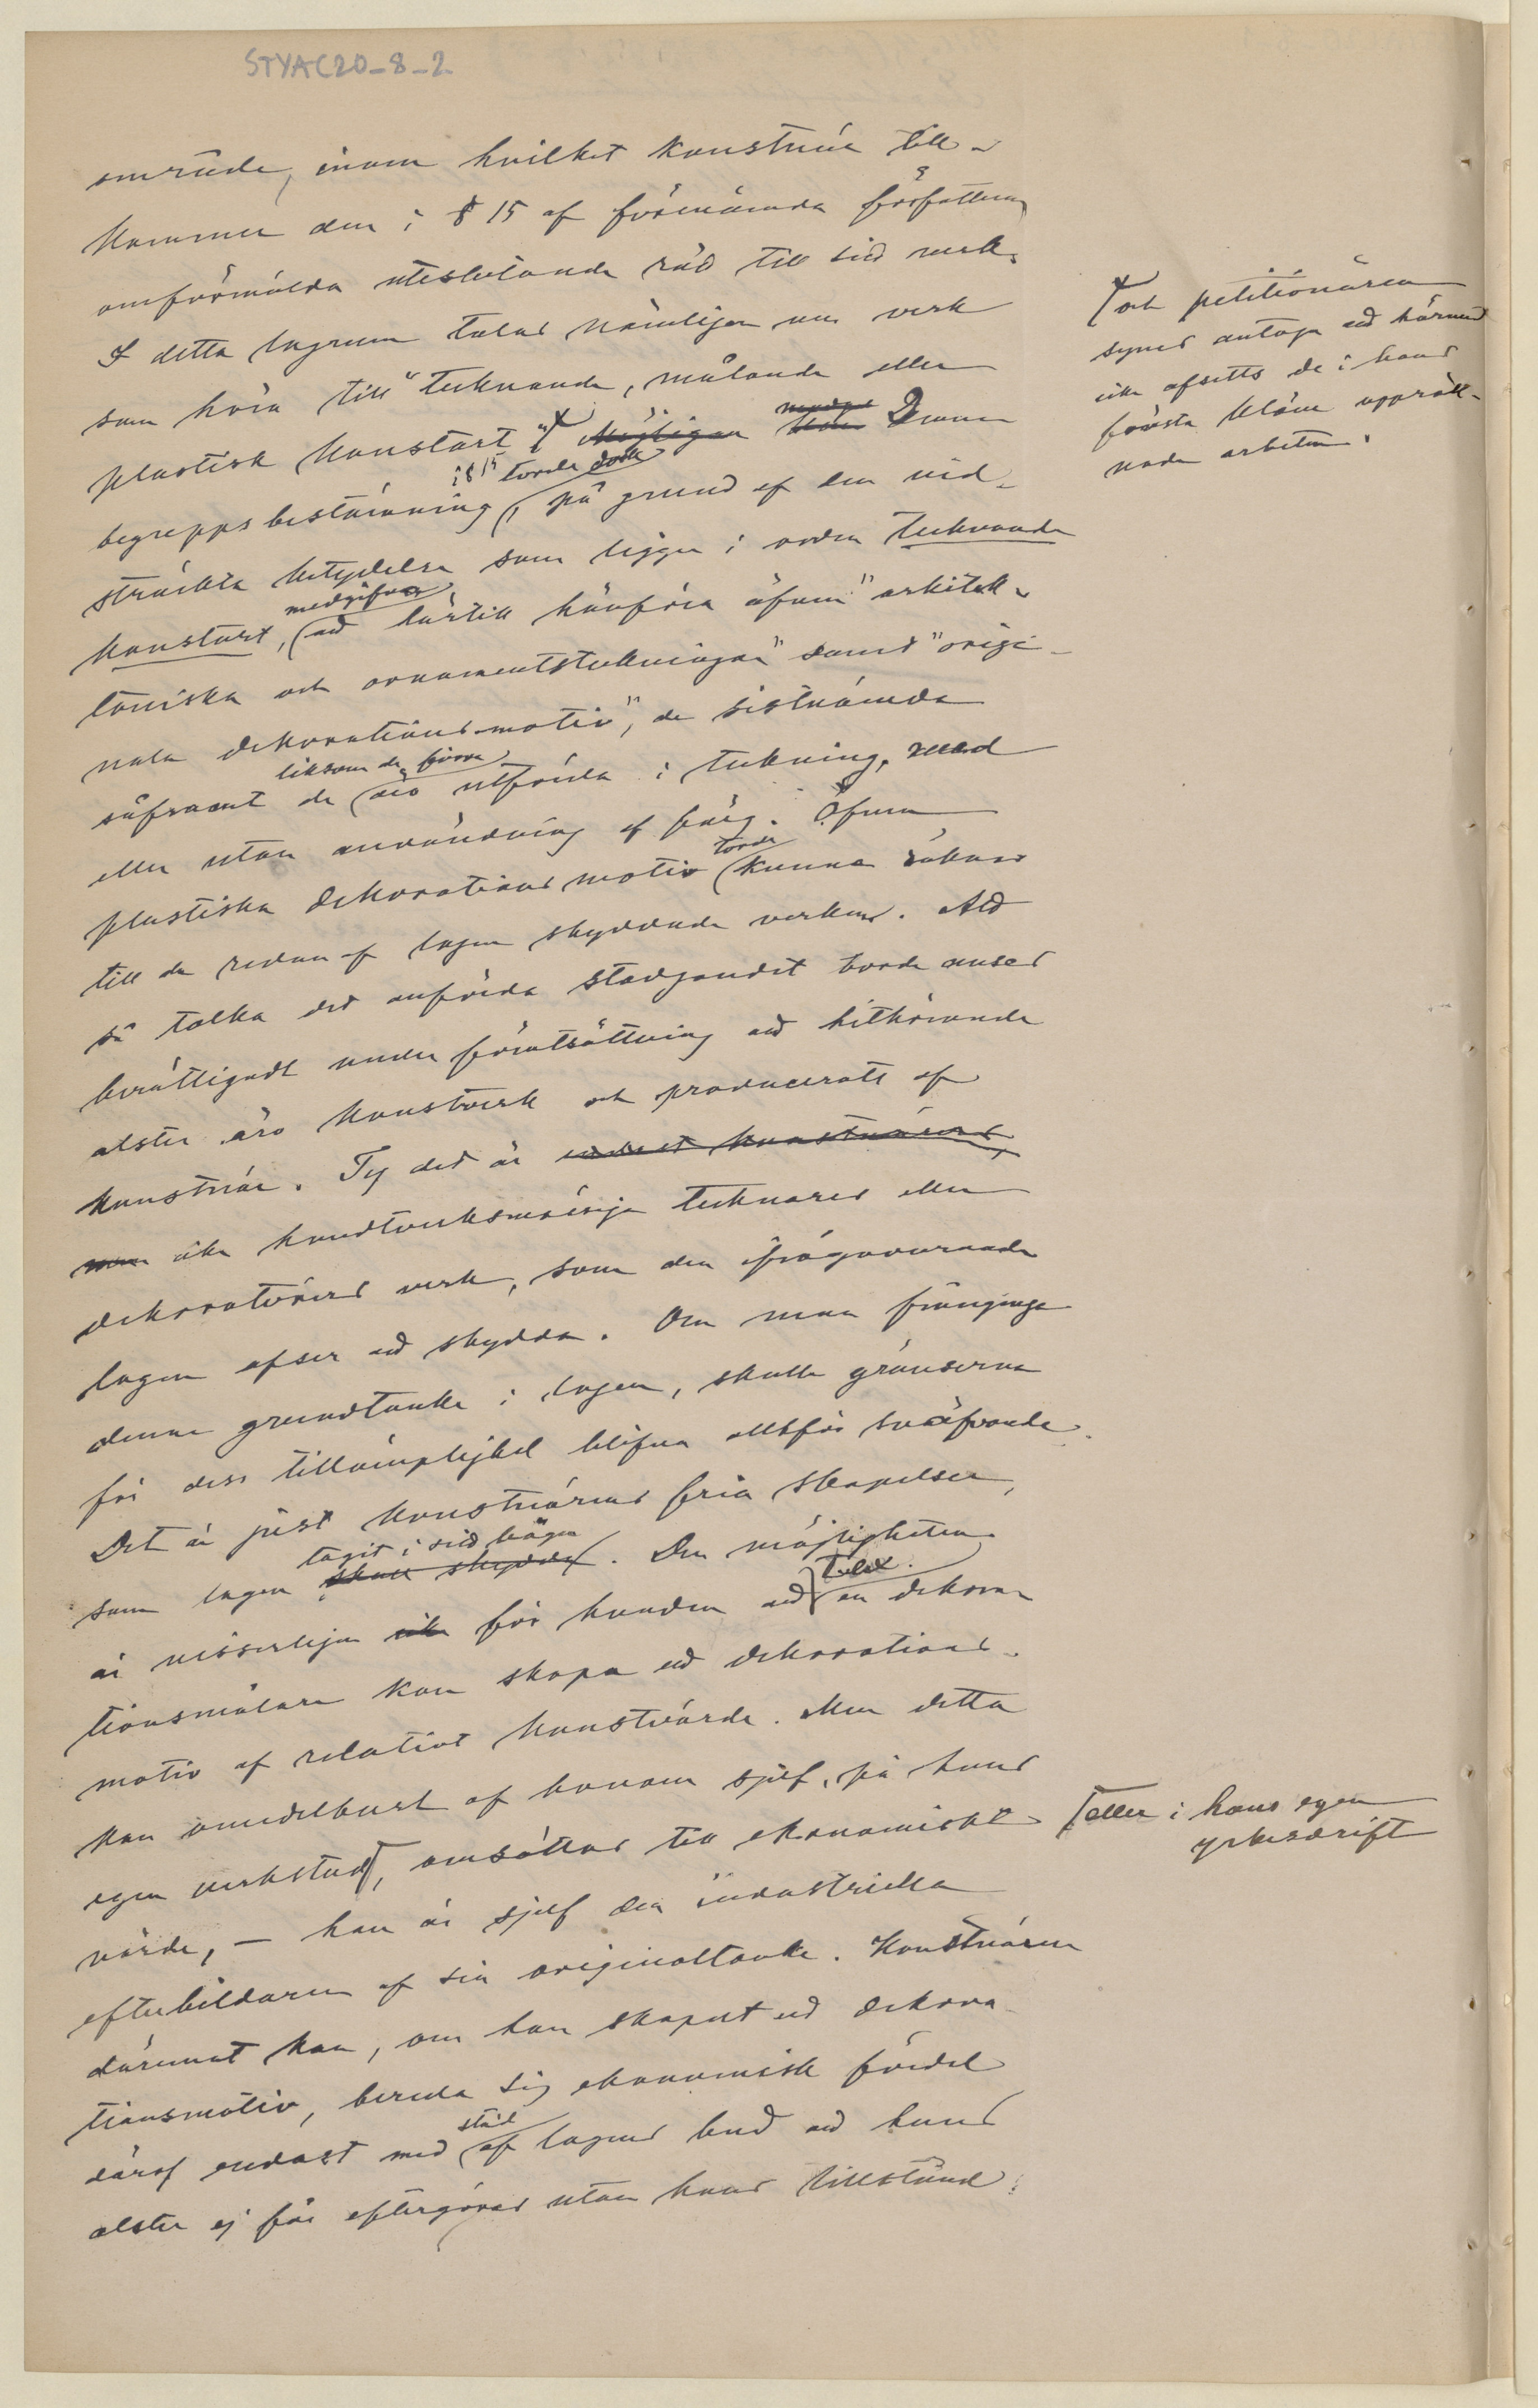 STYAC20-8-2
område, inom hvilket konstnär till-
kommer den i § 15 af förenämnda författning
omförmälda uteslutande rätt till sitt verk.
I detta lagrum talas nämligen om verk
som höra till "tecknande, målande eller
plastisk konstart" Möjligen Denna
i § 15 torde dock
begreppsbestämning, på grund af den vid-
sträckta betydelse som ligger i orden tecknande
medgifva
konstart, att härtill hänföra äfven "arkitek-
toniska och ornamentsteckningar" samt "origi-
nala dekorationsmotiv", de sistnämnda
liksom de förra
såframt de äro utförda i teckning, med
eller utan användning af färg. Äfven
torde
plastiska dekorationsmotiv kunna räknas
till de redan af lagen skyddade verken. Att
så tolka det anförda stadgandet torde anses
berättigadt under förutsättning att hithörande
alster äro konstverk och producerats af
konstnär. Ty det är endast konstnärens,
men icke handtverksmässige tecknares eller
dekoratörers verk, som den ifrågavarande
lagen afser att skydda. Om man frånginge
denna grundtanke i lagen, skulle gränserna
för dess tillämplighet blifva alltför sväfvande.
Det är just konstnärens fria skapelser,
tagit i sitt hägn
som lagen skall skydda. Den möjligheten
är visserligen icke för handen att en dekora-
tionsmålare kan skapa ett dekorations-
motiv af relativt konstvärde. Men detta
kan omedelbart af honom sjelf, på hans
egen verkstad, omsättas till ekonomiskt
värde, – han är sjelf den industriella
efterbildaren af sin originaltanke. Konstnären
däremot kan, om han skapat ett dekora-
tionsmotiv, bereda sig ekonomisk fördel
stöd
däraf endast med af lagens bud att hans
alster ej får eftergöras utan hans tillstånd:
och petitionären
synes antaga att härmed
icke afsetts de i hans
första kläm uppräk-
nade arbeten.
eller i hans egen
yrkesdrift